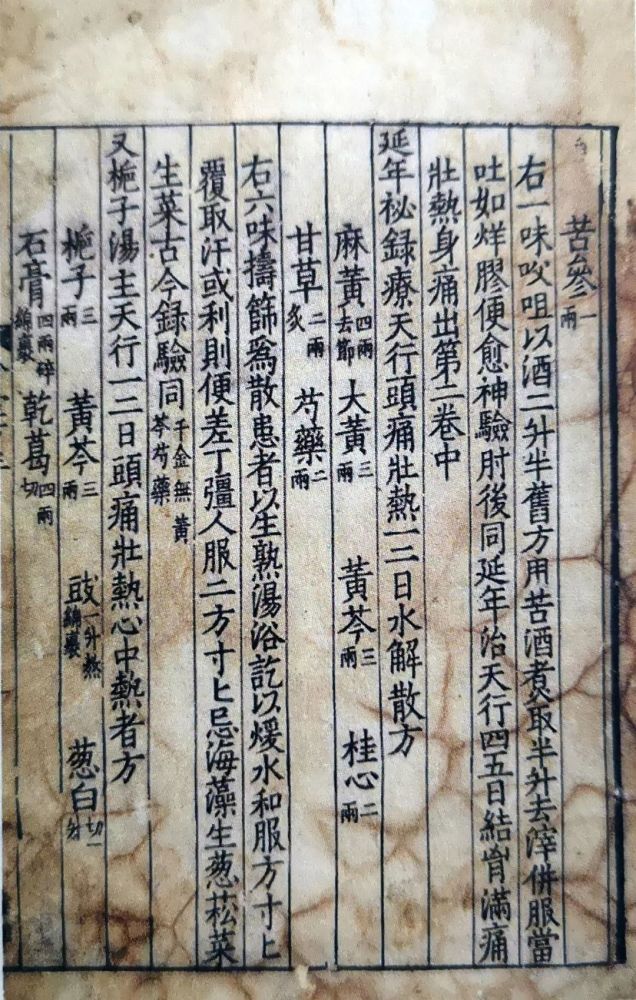 苦參一兩
右一味㕮咀以酒二升半舊方用苦酒煮取半升去滓併服當
吐如烊膠便愈神驗肘後同延年治天行四五日結胷滿痛
壯熱身痛出第二卷中
延年祕録療天行頭痛壯熱一二日水解散方
麻黃四兩去節 大黃三兩 黃芩三兩 桂心二兩
甘草二兩炙 芍藥二兩
右六味擣篩爲散患者以生熟湯浴訖以煖水和服方寸匕
覆取汗或利則便差丁彊人服二方寸匕忌海藻生葱菘菜
生菜古今録驗同千金無黃芩芍藥
又梔子湯主天行一二日頭痛壯熱心中熱者方
梔子三兩 黃芩三兩 豉一升熬綿裹 葱白切一升
石膏四兩碎綿裹 乾葛四兩切